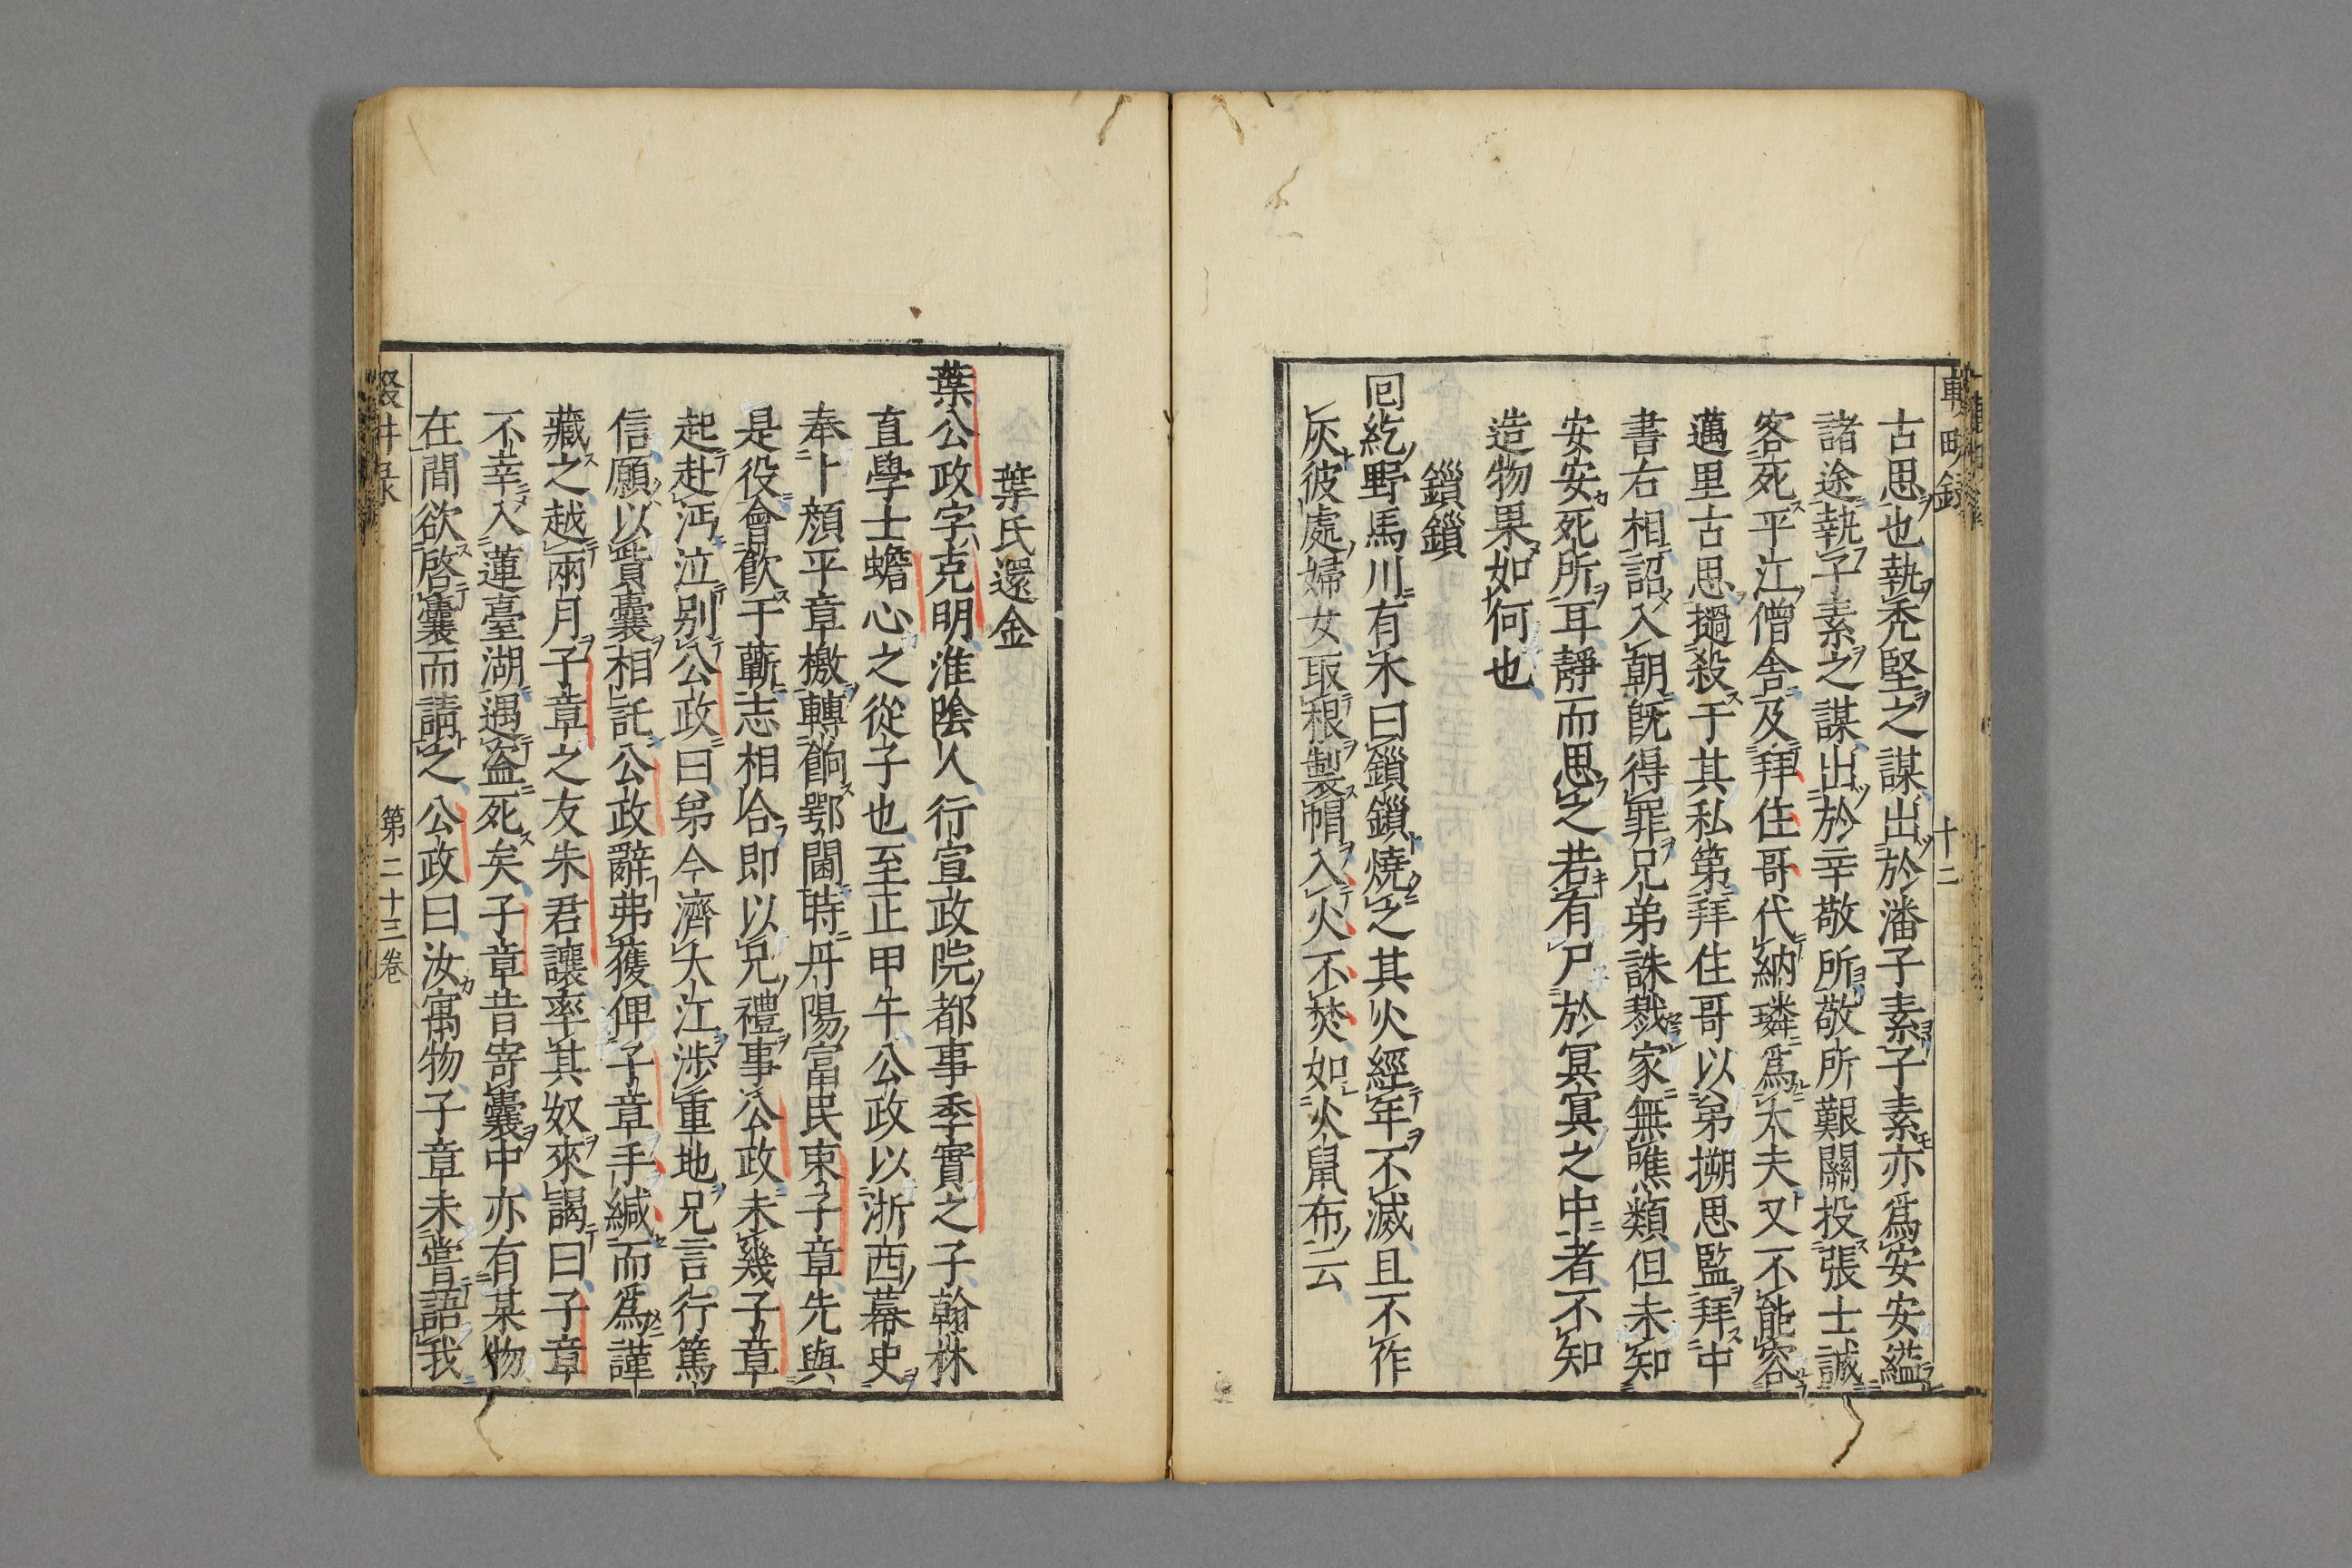 古思也執禿堅之謀出於潘子素子素亦爲安安縊
諸途執子素之謀出於辛敬所敬所艱關投張士誠
客死平江僧舍及拜住哥代納璘爲大夫又不能容
邁里古思撾殺于其私第拜住哥以弟搠思監拜中
書右相詔入朝旣得罪兄弟誅戮家無噍類但未知
安安死所耳靜而思之若有尸於冥冥之中者不知
造物果如何也
鎖鎖
囘紇野馬川有木曰鎖鎖燒之其火經年不滅且不作
灰彼處婦女取根製帽入火不焚如火鼠布云
十二
葉氏還金
葉公政字克明淮陰人行宣政院都事季實之子翰林
直學士蟾心之從子也至正甲午公政以浙西幕史
奉卜顔平章檄轉餉鄂閫時丹陽富民束子章先與
是役會飮于蘄志相合即以兄禮事公政未幾子章
起赴沔泣别公政曰弟今濟大江渉重地兄言行篤
信願以貲囊相託公政辭弗獲俾子章手緘而爲謹
藏之越兩月子章之友朱君讓率其奴來謁曰子章
不幸入蓮臺湖遇盗死矣子章昔寄囊中亦有某物
在間欲啓囊而請之公政曰汝寓物子章未嘗語我
第二十三卷